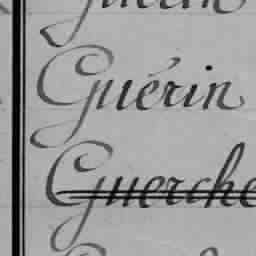 Guérin
Guerche